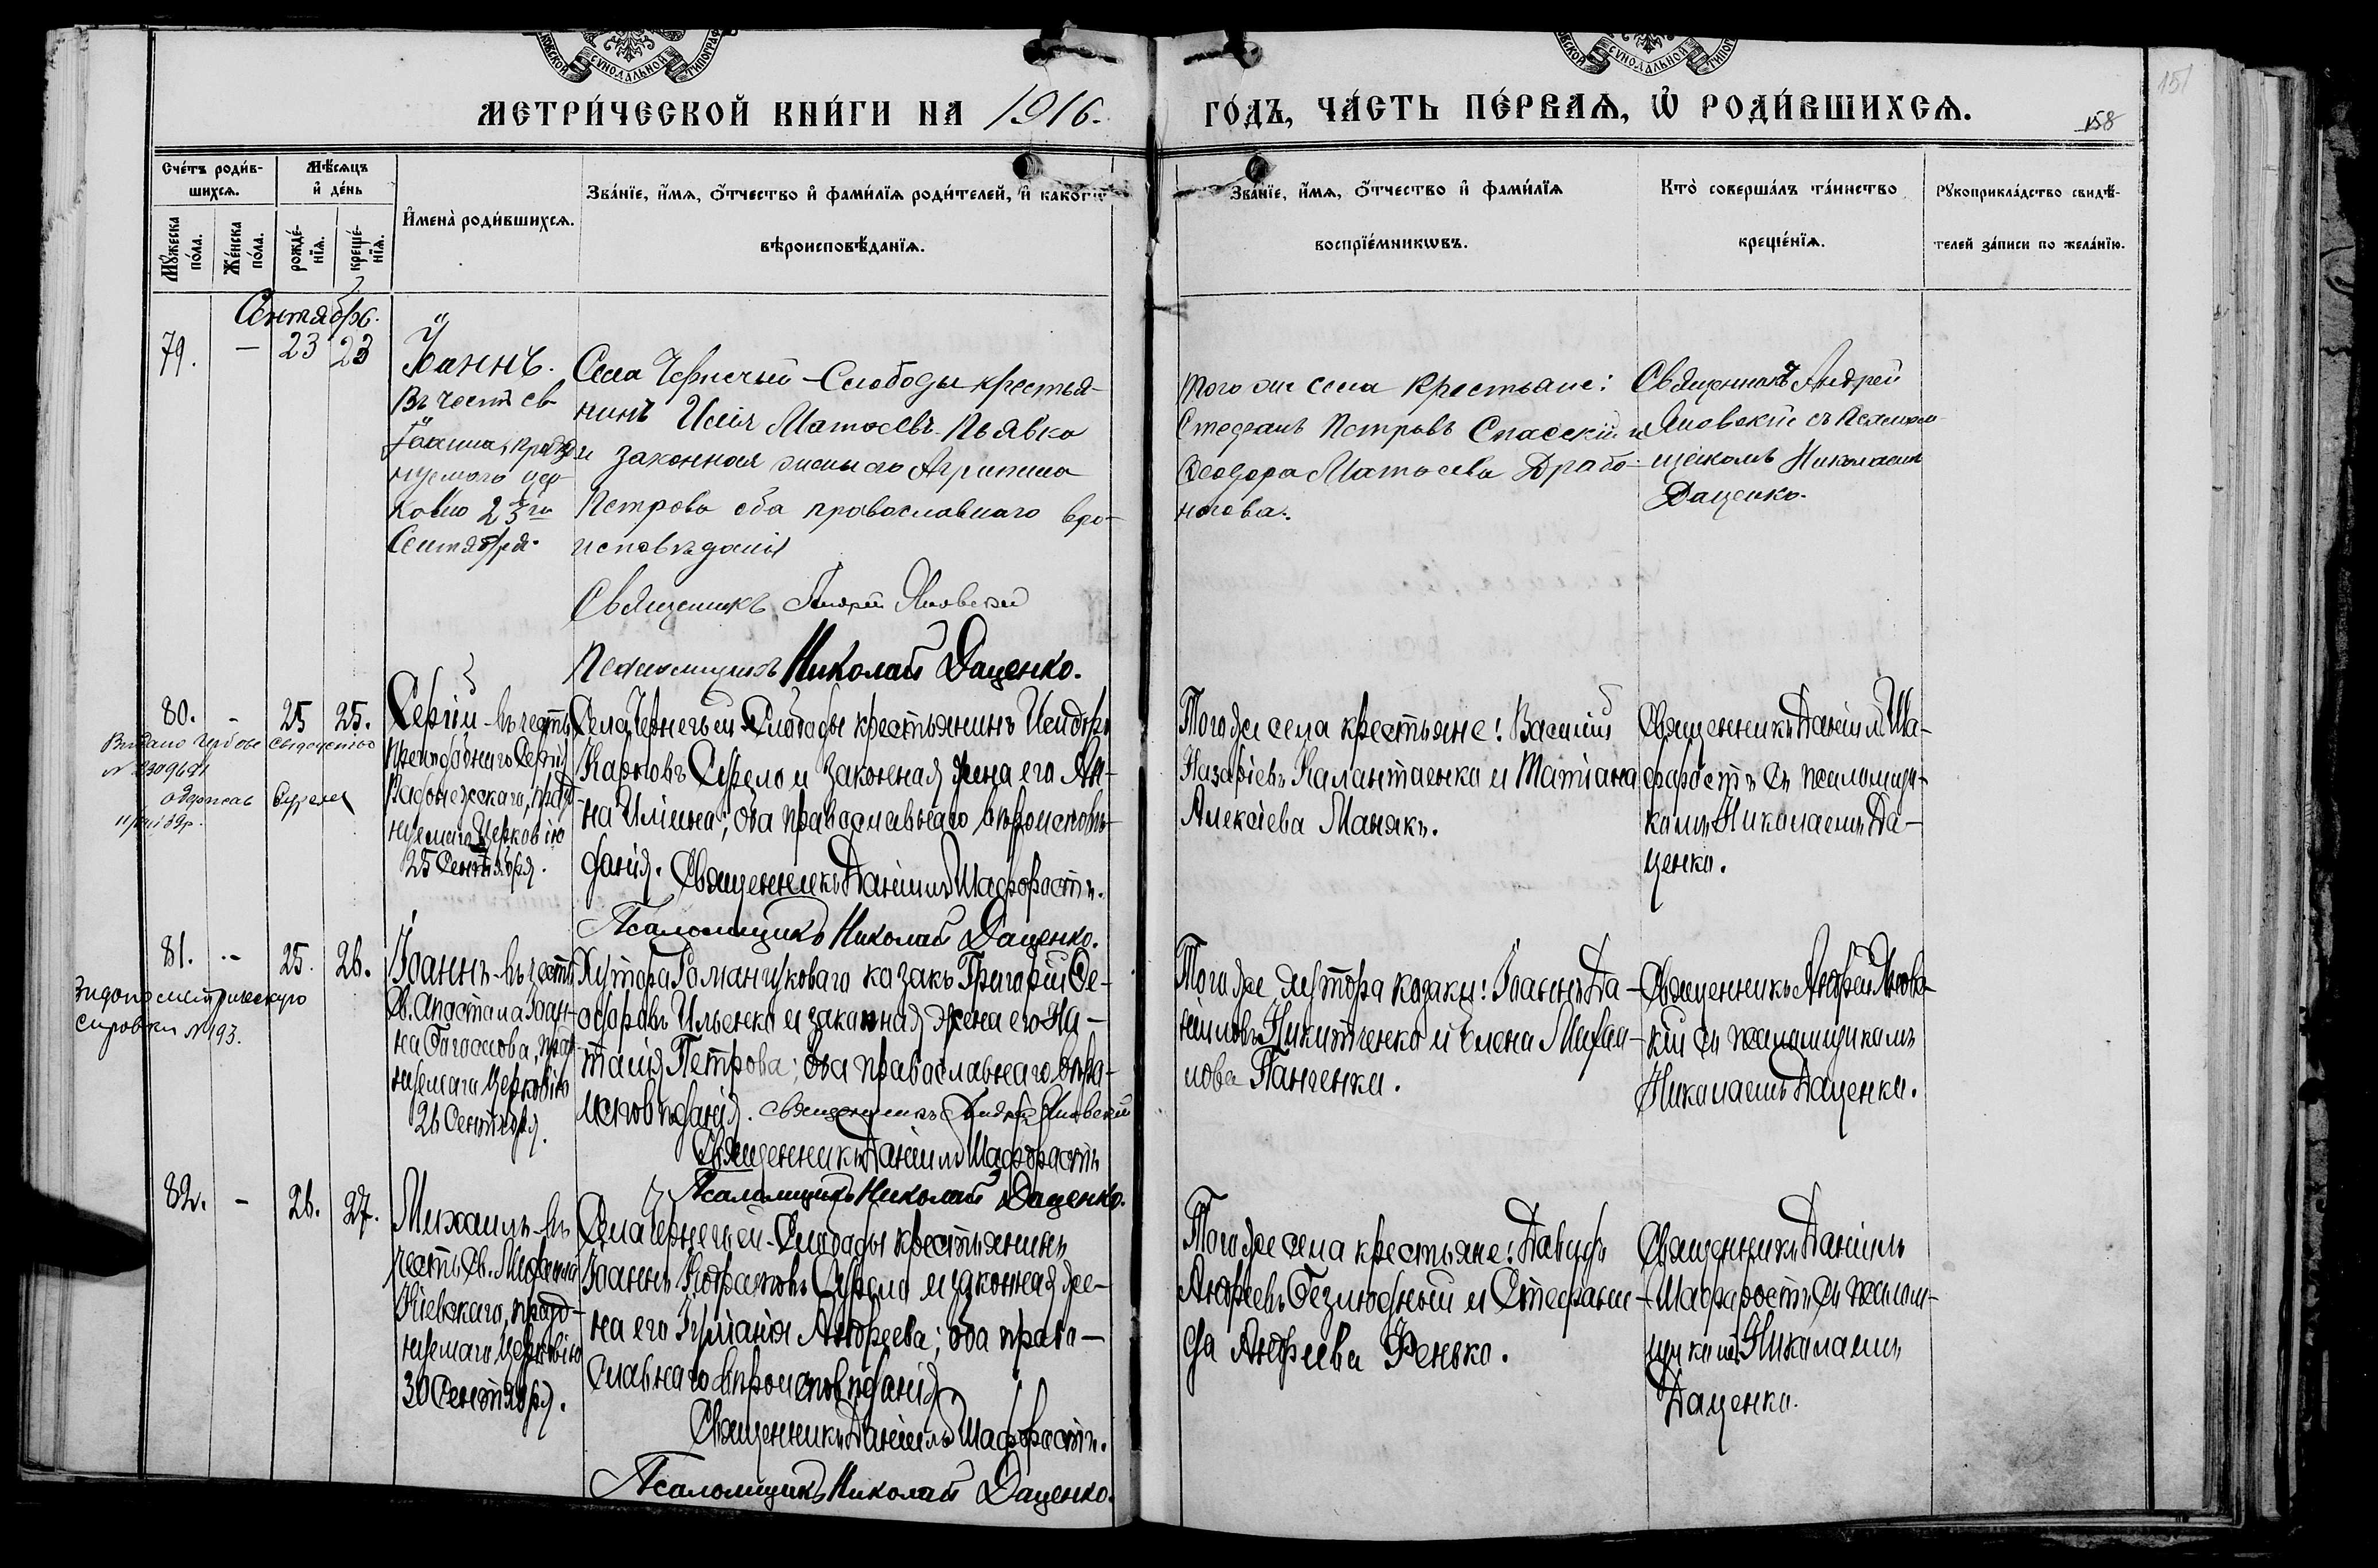 МЕТРИ́ЧЕСКОЙ КНИ́ГИ НА 1916.
ГО́ДЪ, ЧА́СТЬ ПЕ́РВАѦ, Ѽ РОДИ́ВШИХСѦ.
158
151
Сче́тъ роди́в-
шихсѧ.
Мѣ́сѧцъ
и҆ де́нь
Мꙋ́жеска
по́ла.
Же́нска
по́ла.
рожде́-
нїѧ.
креще́-
нїѧ.
И҆мена̀ роди́вшихсѧ.
Зва́нїе, и҆́мѧ, ѻ҆́тчество и҆ фами́лїѧ роди́телей, и҆ како́гѡ
вѣроисповѣ́данїѧ.
Зва́нїе, и҆́мѧ, ѻ҆́тчество и҆ фами́лїѧ
воспрїе́мникѡвъ.
Кто̀ соверша́лъ та́инство
креще́нїѧ.
Рꙋкоприкла́дство свидѣ́-
телей за́писи по жела́нїю.
Сентябрь.
79. — 23 23
Іоаннъ.
Въ честь св
Іоанна, празд-
нуемого цер-
ковію 23го
Сентября.
Села Чернечьей-Слободы крестья-
нинъ Илія Матѳеевъ Пьявка
и законная жена его Агрипина
Петрова оба православнаго вѣро-
исповѣданія
Священникъ Андрей Яновскій
Псаломщикъ Николай Даценко.
Того же села крестьяне:
Стефанъ Петровъ Спасскій и
Ѳеодора Матѳеева Драбо-
ногова.
Священникъ Андрей
Яновскій съ псалом-
щикомъ Николаемъ
Даценко.
80. - 25 25.
Выдано гербове свидетство
N 2309691
одержав Сурела
Сергій-въ честь
Преподобнаго Сергія
Радонежскаго, празд-
нуемаго Церковію
25 Сентября.
Села Чернечьей Слободы крестьянинъ Исидоръ
Карповъ Сурело и законная жена его Ан-
на Иліина; оба православнаго вѣроисповѣ-
данія. Священникъ Даніилъ Шафорастъ.
Псаломщикъ Николай Даценко.
Того же села крестьяне: Василій
Назаріевъ Калантаенко и Татіана
Алексіева Маняк.
Священникъ Даніилъ Ша-
форостъ съ псаломщи-
комъ Николаемъ Да-
ценко.
81. - 25. 26.
справки N 193.
Іоаннъ-въ честь
Св. Апостола Іоан-
на Богослова, празд-
нуемаго Церковію
26 Сентября.
Хутора Романчуковаго казакъ Григорій Ѳе-
одоровъ Ильенко и законная жена его На-
талія Петрова; оба православнаго вѣро-
исповѣданія. Священникъ Андрей Яновскій
Священникъ Даніилъ Шафорастъ
Псаломщикъ Николай Даценко.
Того же хутора казаки: Іоаннъ Да-
ніиловъ Никитченко и Елена Михаи-
лова Панченко.
Священникъ Андрей Яновс-
кій съ псаломщикомъ
Николаемъ Даценко.
82. - 26. 27.
Михаилъ-въ
честь Св. Михаила
Кіевскаго, празд-
нуемаго Церковію
30 Сентября.
Села Чернечьей-Слободы крестьянинъ
Іоаннъ Кодратовъ Сурело и законная же-
на его Іуліанія Андреева; оба право-
славнаго вѣроисповѣданія
Священникъ Даніилъ Шафорастъ.
Псаломщикъ Николай Даценко.
Того же села крестьяне: Давидъ
Андреевъ Безлюдный и Стефани-
да Андреева Фенько.
Священникъ Даніилъ
Шафоростъ съ псалом-
щикомъ Николаемъ
Даценко.